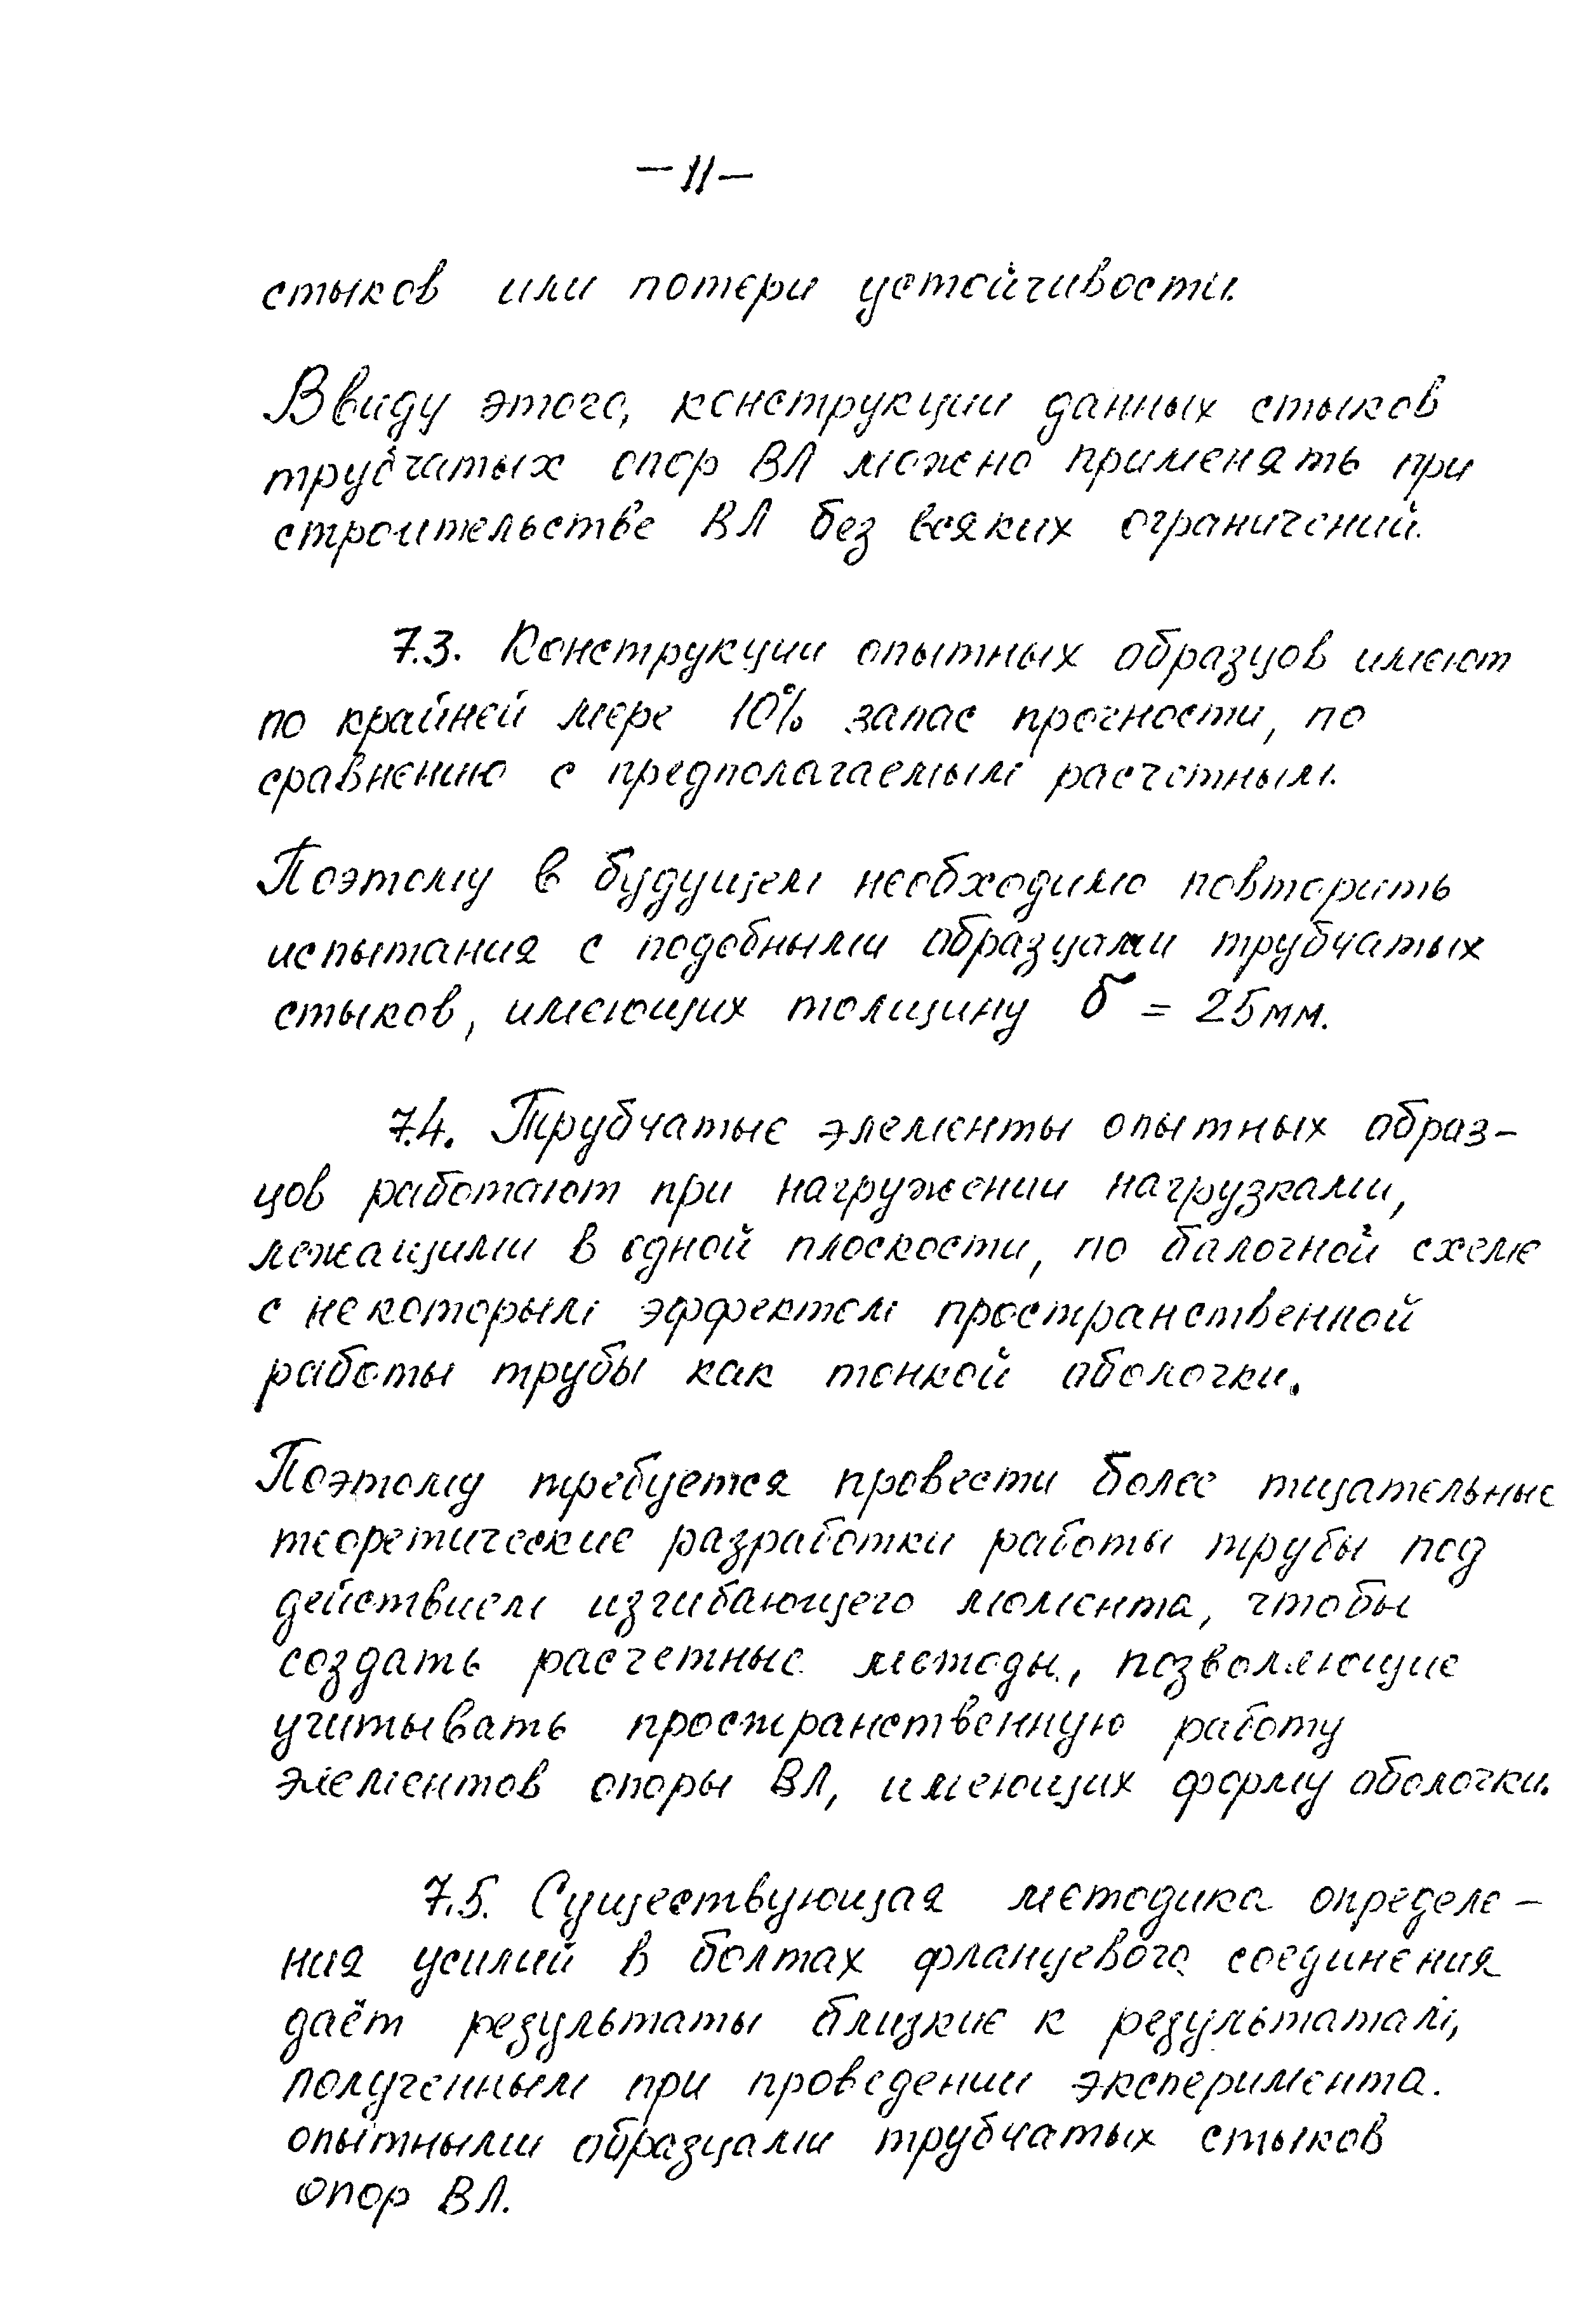 - 11 -
стыков или потери устойчивости.
Ввиду этого, конструкции данных стыков
трубчатых опор ВЛ можно применять при
строительстве ВЛ без всяких ограничений.
7.3. Конструкции опытных образцов имеют
по крайней мере 10% запас прочности, по
сравнению с предполагаемым расчетным.
Поэтому в будущем необходимо повторить
испытания с подобными образцами трубчатых
стыков, имеющих толщину δ = 25мм.
7.4. Трубчатые элементы опытных образ-
цов работают при нагружении нагрузками,
лежащими в одной плоскости, по балочной схеме
с некоторым эффектом пространственной
работы трубы как тонкой оболочки.
Поэтому требуется провести более тщательные
теоретические разработки работы трубы под
действием изгибающего момента, чтобы
создать расчетные методы, позволяющие
учитывать пространственную работу
элементов опоры ВЛ, имеющих форму оболочки.
7.5. Существующая методика определе-
ния усилий в болтах фланцевого соединения
даёт результаты близкие к результатам,
полученным при проведении эксперимента.
опытными образцами трубчатых стыков
опор ВЛ.